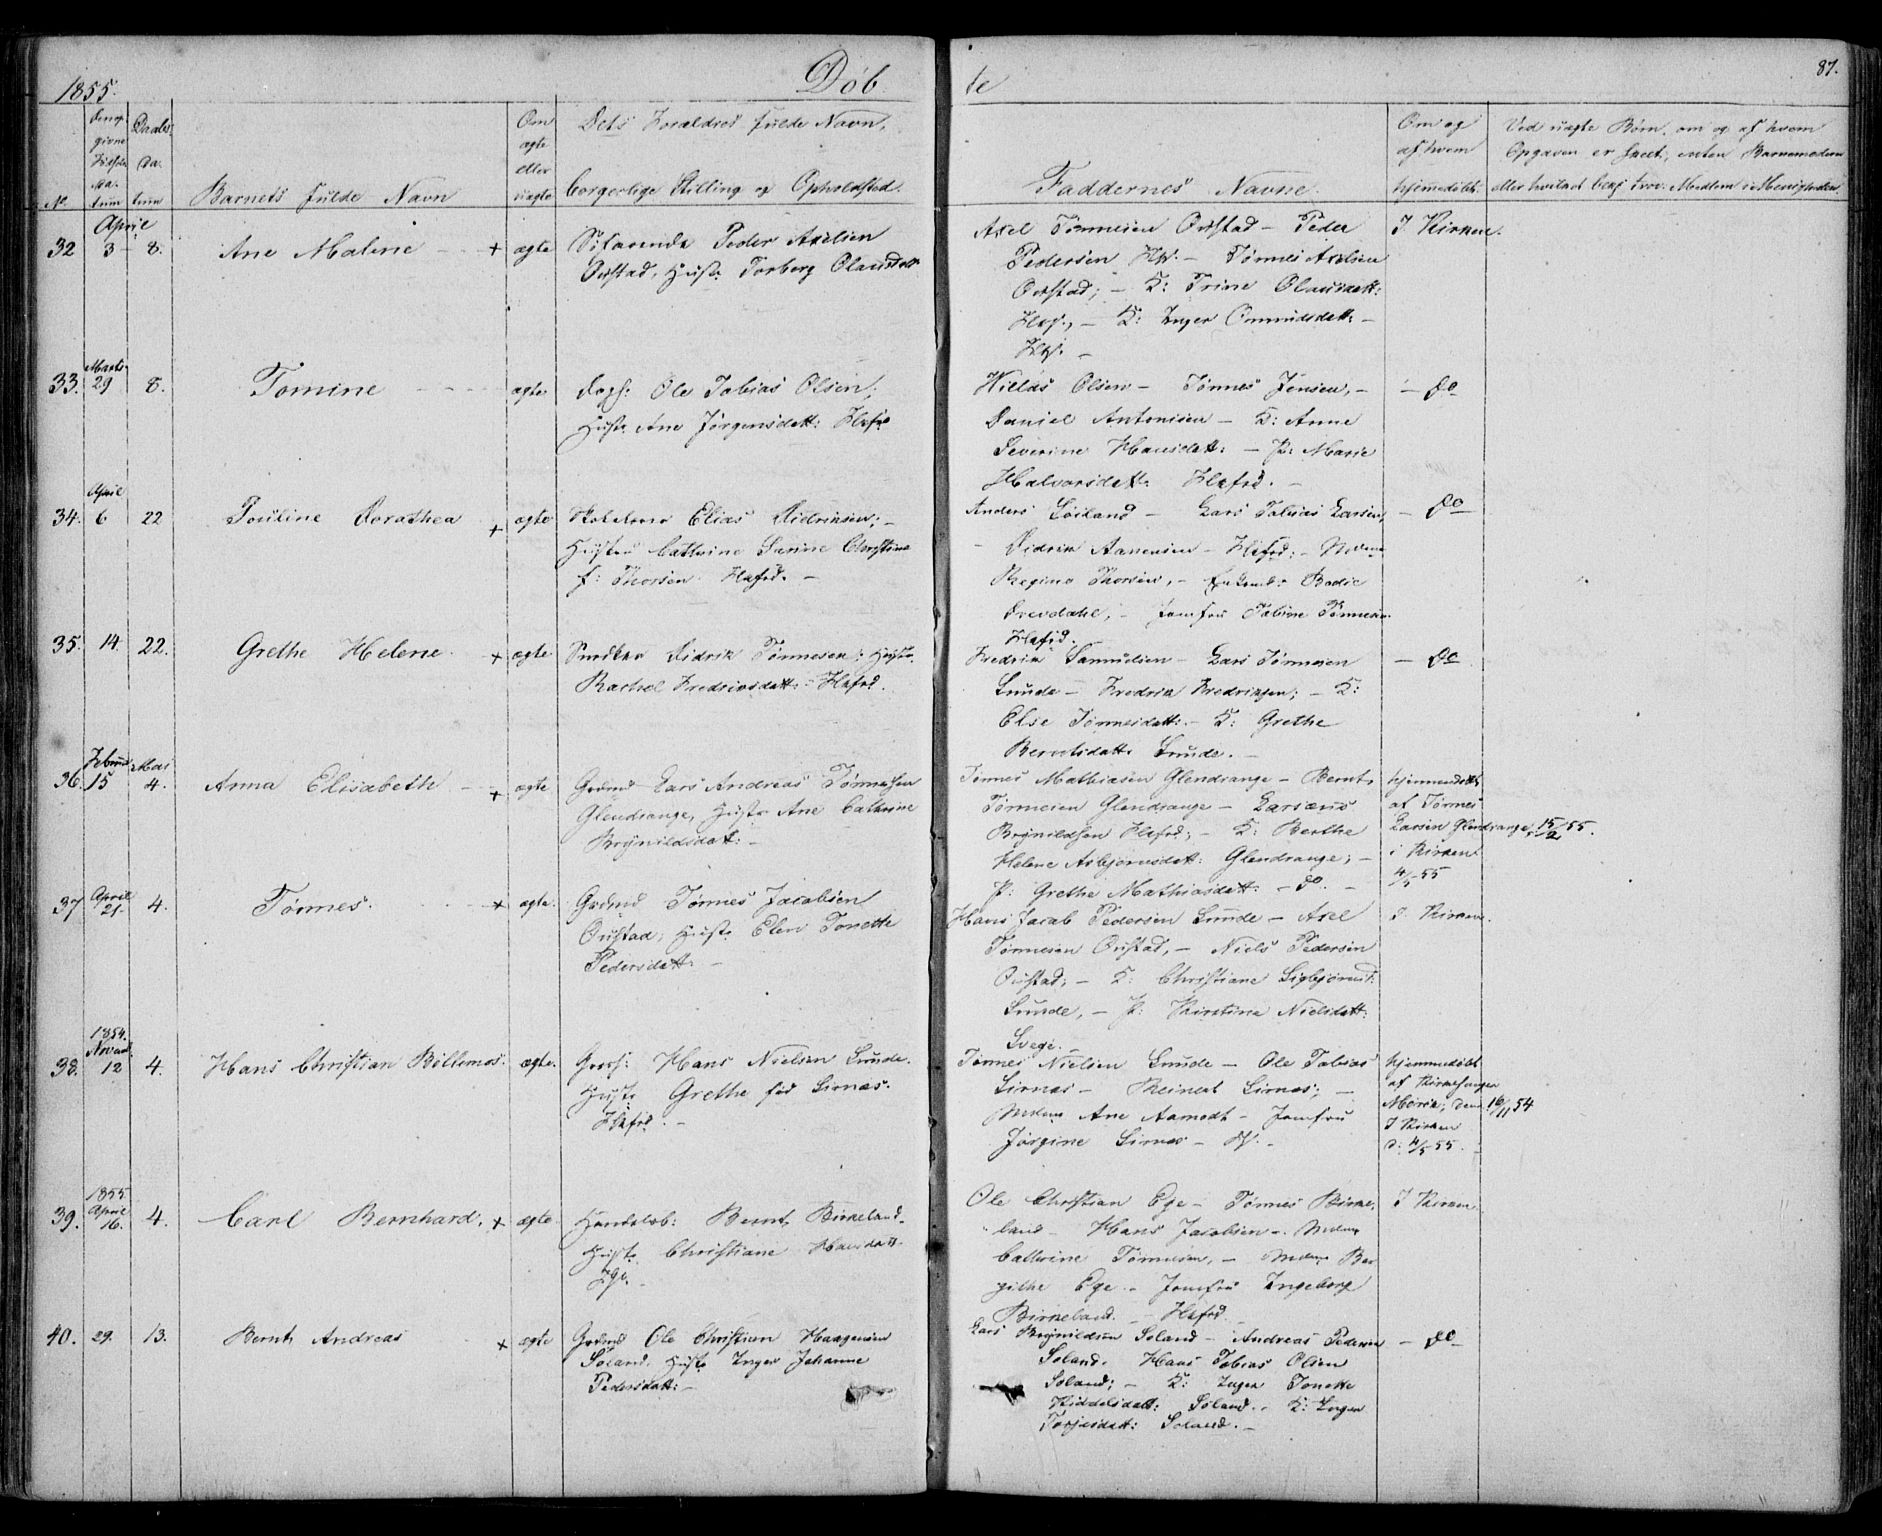 1855.
Døb
te
87.
No
Den op-
givne
Fødsels
Da-
tum
Daabs-
Da-
tum
Barnets fulde Navn
Om
ægte
eller
uægte
Dets Forældres fulde Navn,
borgerlige Stilling og Opholdsted.
Faddernes Navne.
Om og
af hvem
hjemmedøbt.
Ved uægte Børn, om og af hvem
Opgaven er skeet, enten Barnemoderen
eller hvilket
April
32 3 8. Ane Malene + ægte
Søfarende Peder Axelsen
Ovstad, Hustr. Torborg Olausdatt.
Axel Tønnesen Ovstad - Peder
Pedersen - Tønnes Axelsen
Ovstad; - K: Trine Olausdatt:
- K: Inger Omundsdatt: -
I Kirken.
Marts
33. 29 8. Tomine ægte
Ole Tobias Olsen,
Hustr. Ane Jørgensdatt: Flekfd
Olsen - Tønnes Jensen, -
Daniel Antonisen - K: Anne
Severine Hansdatt: - P: Marie
Halvorsdatt. Flekfd. -
- do
April
34. 6 22 Pouline Dorothea + ægte
Elias Didriksen; -
Hustru Cathrine Serine Christine
f: Thorsen Flekfd. -
Anders Løiland - Lars Tobias Larsen,
- Didrik Aanensen - Flekfd; - Mdme
Regine Thorsen, - Bodil
Drevdahl, - Jomfru Tobine Tønnesen
Flekfd.
- do
35. 14. 22. Grethe Helene. + ægte
Snedker Didrik Tønnesen; Hustr.
Rachel Fredriksdatt: - Flekfd.
Fredrik Samuelsen - Lars Tønnesen
Lunde - Fredrik Fredriksen; - K:
Else Tønnesdatt: - K: Grethe
Berntsdatt. Lunde. -
- do
Februar Mai
36. 15 4. Anna Elisabeth + ægte
Grdmd Lars Andreas Tønnesen
Glendrange, Hustr. Ane Cathrine
Brynildsdat: -
Tønnes Mathiasen Glendrange - Bernt
Tønnesen Glendrange - Larsens
Brynildsen Flekfd; - K: Berthe
Helene Asbjørnsdat: Glendrange; -
P: Grethe Mathiasdatt. - do. -
hjemmedøbt
af Tønnes
Larsen Glendrange 15/2 55.
i Kirken
4/5 55
April
37 21. 4. Tønnes. + ægte.
Grdmd Tønnes Jacobsen
Ovstad, Hustr. Elen Tonette
Pedersdatt: -
Hans Jacob Pedersen Lunde - Axel
Tønnesen Ovstad, - Niels Pedersen
Ovstad; - K: Christiane Sigbjørnsd:
Lunde, - P: Kirstine Nielsdatt:
Svege. -
I Kirken.
1854.
Novemb:
38. 12 4. Hans Christian Bøllemos: ægte.
Hans Nielsen Lunde.
Hustr. Grethe fød Sirnæs.
Flekfd. -
Tønnes Nielsen Lunde - Ole Tobias
Sirnæs - Reinert Sirnæs; -
Mdme Ane Aamodt - Jomfru
Jørgine Sirnæs -
hjemmedøbt
af Kirkesanger
den 16/11 54
I Kirken
d. 4/5 55.
1855
April
39. 16. 4. Carl Bernhard. + ægte.
Bernt Birkeland.
Hustr. Christiane Hansdatt.
Ege. -
Ole Christian Ege - Tønnes Birke-
land - Hans Jacobsen - Mdme
Cathrine Tønnesen, - Mdme Ber-
githe Ege - Jomfru Ingeborg
Birkeland. - Flekfd.
I Kirken.
40. 29. 13. Bernt Andreas + ægte
Grdmd Ole Christian Haagensen
Søland. Hustr. Inger Johanne
Pedersdatt: -
Lars Brynildsen Søland - Andreas Pedersen
Søland. Hans Tobias Olsen
Søland; - K: Inger Tonette
Kiddelsdatt: Søland. K: Inger
Torjusdatt: Søland. -
- do -